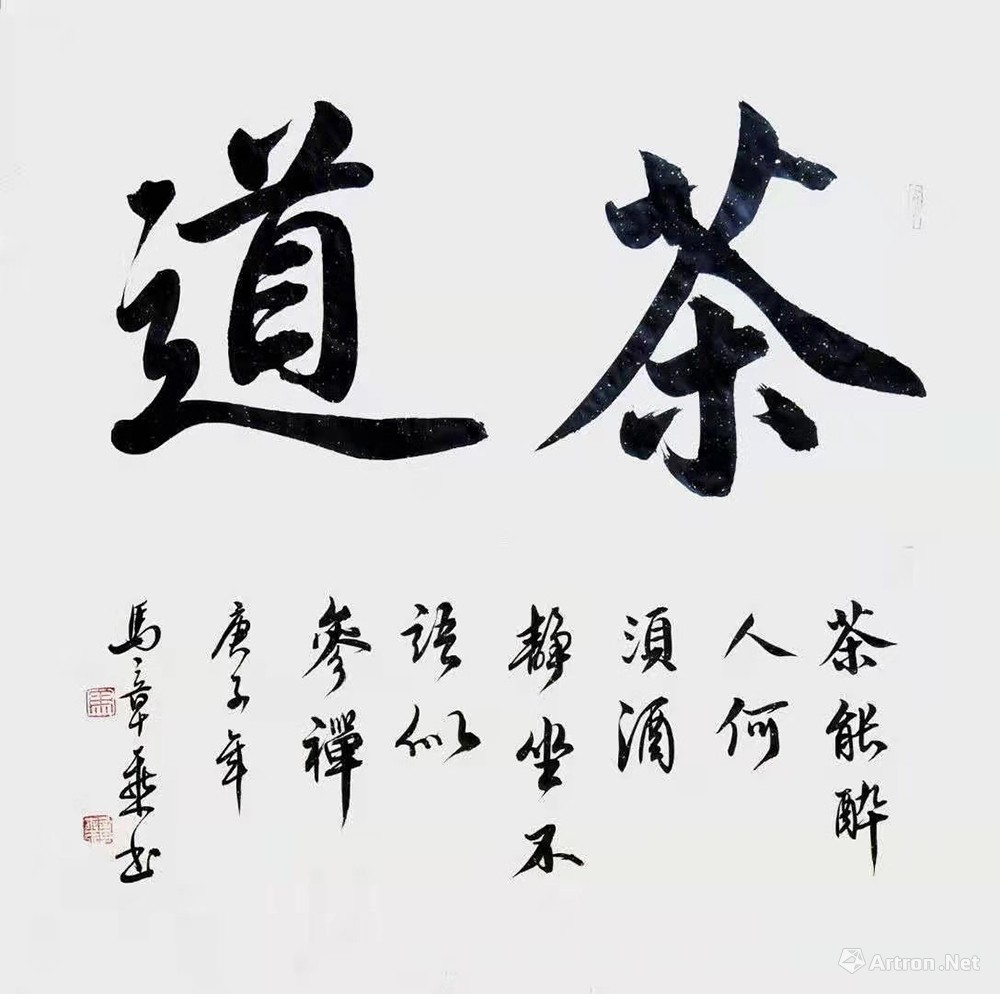 茶道
茶能醉
人何
須酒
静坐不
語似
參禪
庚子年
馬章乘书
Artron.Net